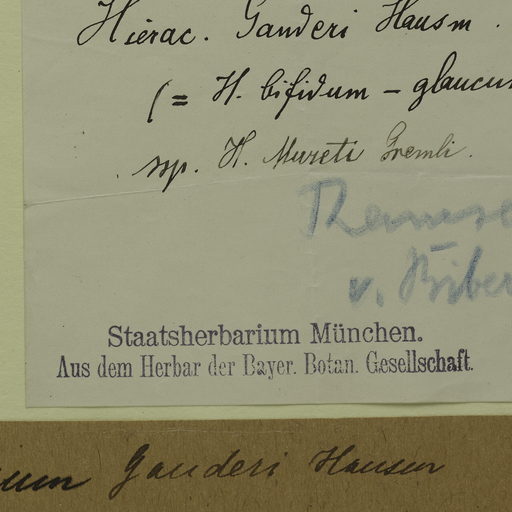 Hierac. Ganderi Hausm.
(= H. bifidum – glaucu
ssp. H. Mureti Gremli.
v.
Staatsherbarium München.
Aus dem Herbar der Bayer. Botan. Gesellschaft.
Ganderi Hausm